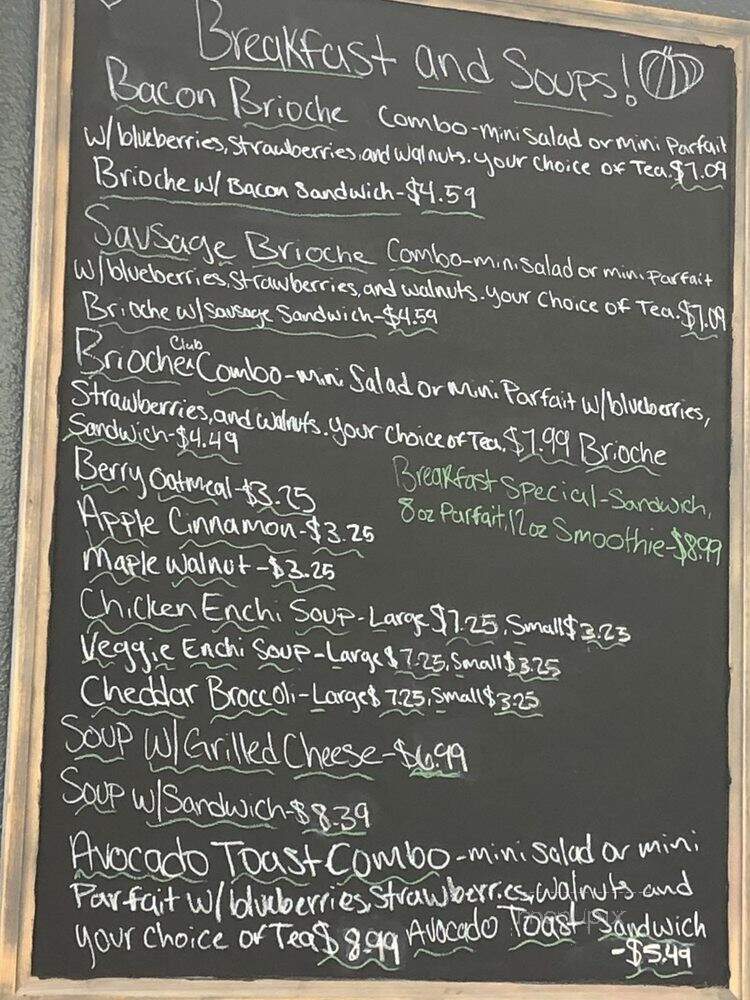 Breakfast and Soups!
Bacon Brioche Combo-mini salad or mini Parfait
w/blueberries, strawberries, and walnuts. your choice of Tea. $7.09
Brioche w/ Bacon Sandwich-$4.59
Sausage Brioche Combo-mini salad or mini Parfait
w/blueberries, strawberries, and walnuts. your choice of Tea. $7.09
Brioche w/Sausage Sandwich-$4.59
Brioche Club Combo-mini Salad or mini Parfait w/blueberries,
Strawberries, and walnuts. your choice of Tea. $7.99 Brioche
Sandwich-$4.49
Berry Oatmeal-$3.25
Apple Cinnamon-$3.25
Maple Walnut-$3.25
Breakfast Special-Sandwich,
8oz Parfait, 12oz Smoothie-$8.99
Chicken Enchi Soup-Large $7.25, Small $3.25
Veggie Enchi Soup-Large $7.25, Small $3.25
Cheddar Broccoli-Large $7.25, Small $3.25
Soup W/Grilled Cheese-$6.99
Soup w/Sandwich-$8.39
Avocado Toast Combo-mini salad or mini
Parfait w/blueberries, strawberries, walnuts and
your choice of Tea $8.99 Avocado Toast Sandwich
-$5.49